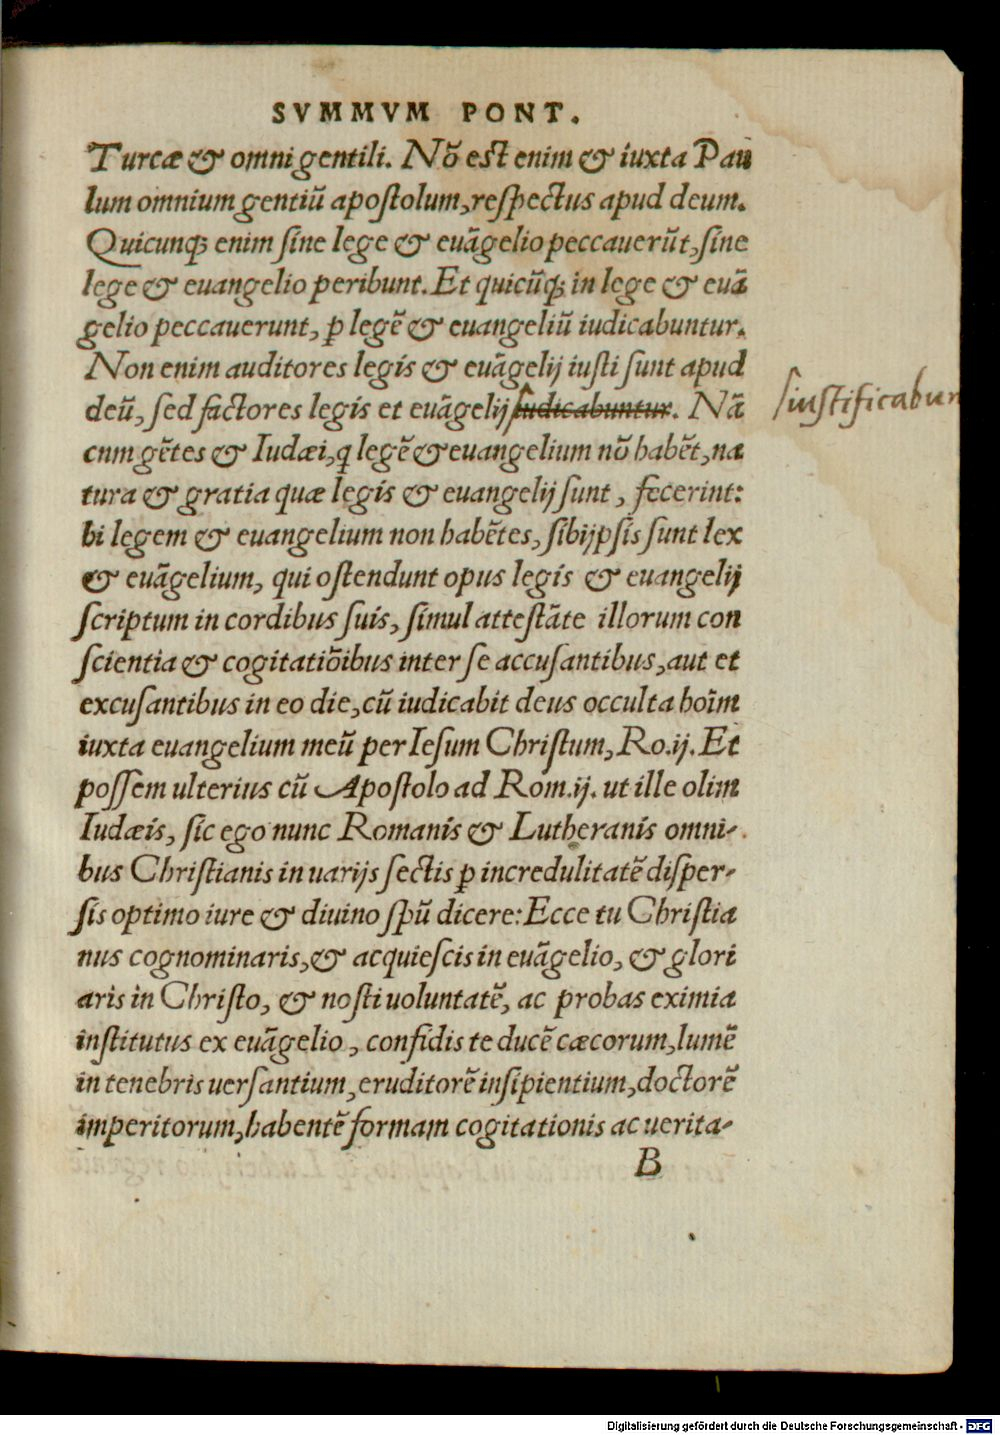 SVMMVM PONT.
Turcæ & omni gentili. Nõ est enim & iuxta Pau
lum omnium gentiũ apostolum, respectus apud deum.
Quicunqꝫ enim sine lege & euãgelio peccauerũt, sine
lege & euangelio peribunt. Et quicũqꝫ in lege & euã
gelio peccauerunt, ꝑ legẽ & euangeliũ iudicabuntur.
Non enim auditores legis & euãgelij iusti sunt apud
deũ, sed factores legis et euãgelij iudicabuntur. Nã
iustificabun
cnm gẽtes & Iudæi, q legẽ & euangelium nõ habẽt, na
tura & gratia quæ legis & euangelij sunt, fecerint:
bi legem & euangelium non habẽtes, sibijpsis sunt lex
& euãgelium, qui ostendunt opus legis & euangelij
scriptum in cordibus suis, simul attestãte illorum con
scientia & cogitatiõibus inter se accusantibus, aut et
excusantibus in eo die, cũ iudicabit deus occulta hoĩm
iuxta euangelium meũ per Iesum Christum, Ro.ij. Et
possem ulterius cũ Apostolo ad Rom.ij. ut ille olim
Iudæis, sic ego nunc Romanis & Lutheranis omni-
bus Christianis in uarijs sectis ꝑ incredulitatẽ disper-
sis optimo iure & diuino spũ dicere: Ecce tu Christia
nus cognominaris, & acquiescis in euãgelio, & glori
aris in Christo, & nosti uoluntatẽ, ac probas eximia
institutus ex euãgelio, confidis te ducẽ cæcorum, lumẽ
in tenebris uersantium, eruditorẽ insipientium, doctorẽ
imperitorum, habentẽ formam cogitationis ac uerita-
B
Digitalisierung gefördert durch die Deutsche Forschungsgemeinschaft - DFG